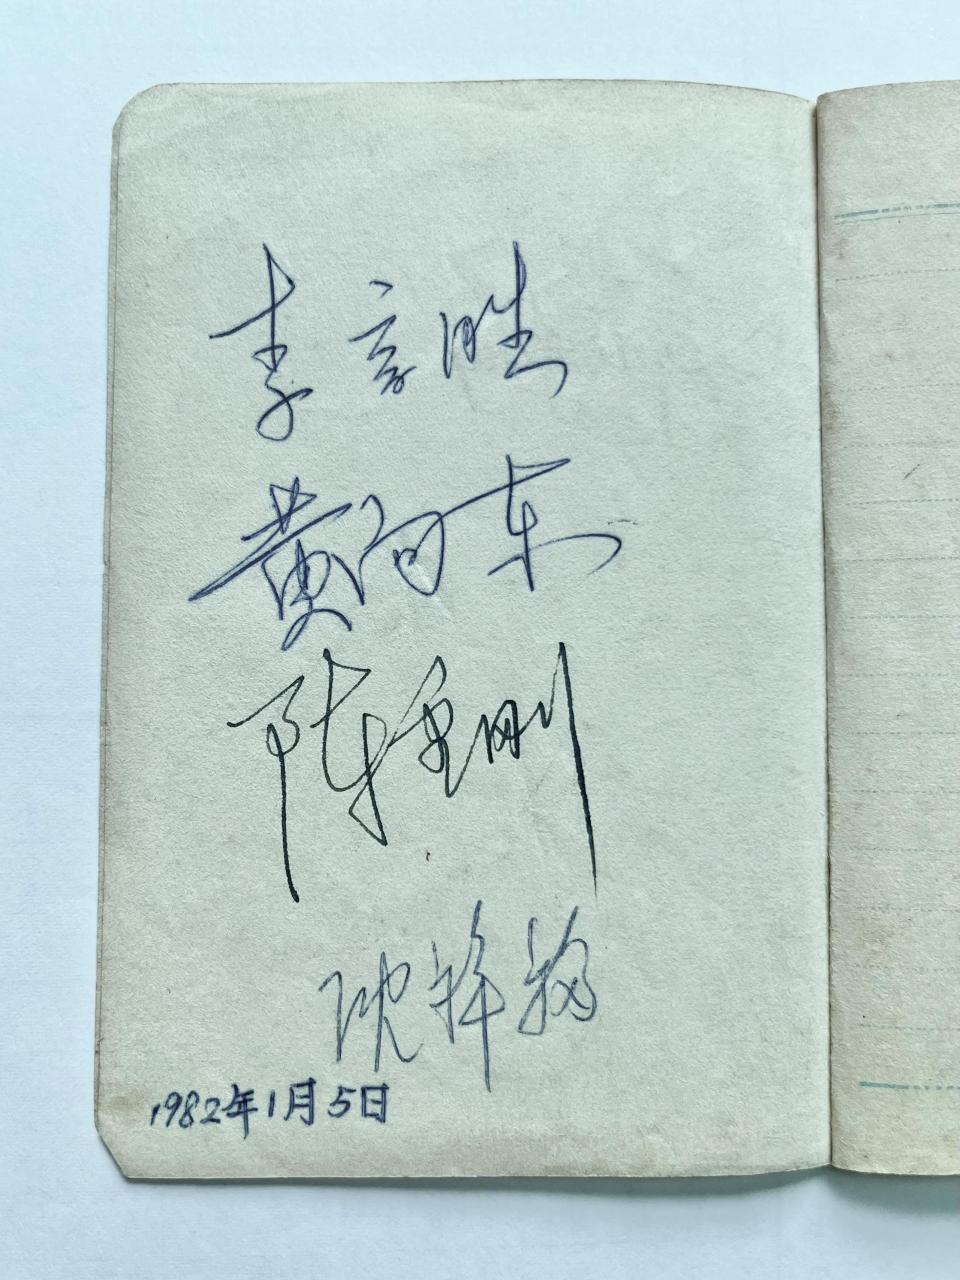 李言胜
黄向东
陈重刚
沈祥
1982年1月5日